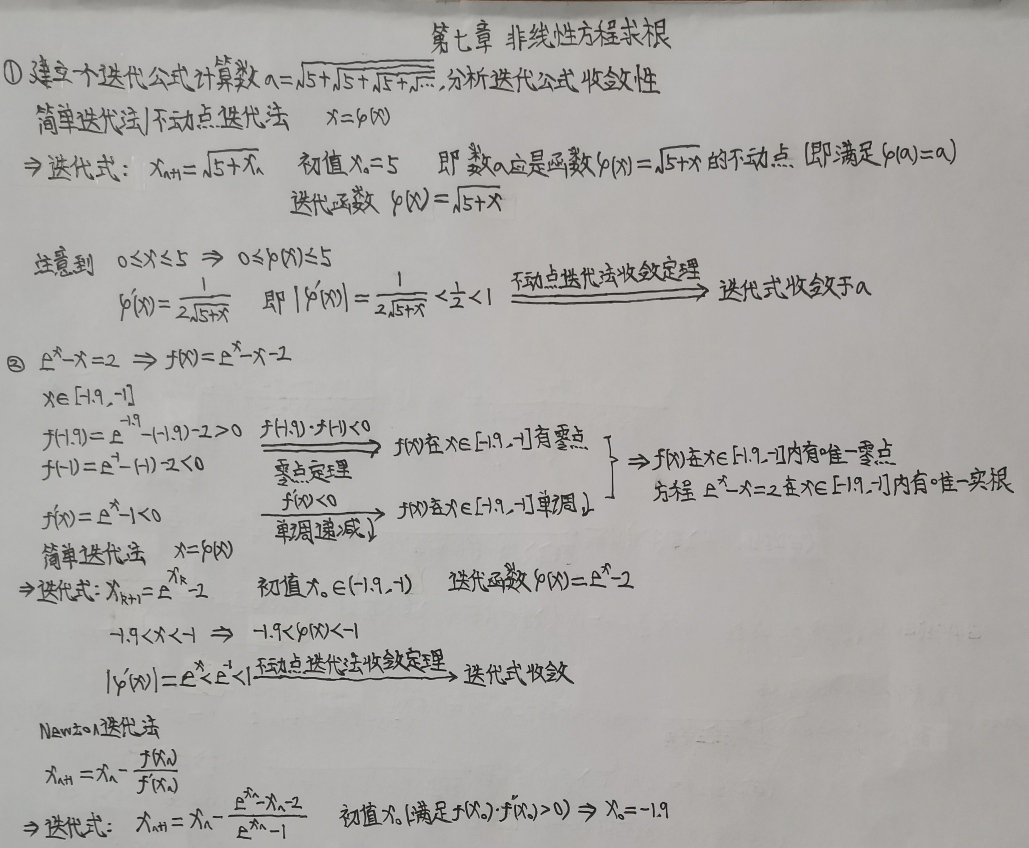 第七章 非线性方程求根
① 建立一个迭代公式计算数a=√(5+√(5+√(5+√…))),分析迭代公式收敛性
简单迭代法/不动点迭代法 x=φ(x)
⇒迭代式: xₙ₊₁=√(5+xₙ) 初值x₀=5 即数a应是函数φ(x)=√(5+x)的不动点(即满足φ(a)=a)
迭代函数 φ(x)=√(5+x)
注意到 0≤x≤5 ⇒ 0≤φ(x)≤5
φ'(x)=1/(2√(5+x)) 即|φ'(x)|=1/(2√(5+x))<1/2<1 不动点迭代法收敛定理 迭代式收敛于a
② eˣ-x=2 ⇒ f(x)=eˣ-x-2
x∈[-1.9,-1]
f(-1.9)=e^(-1.9)-(-1.9)-2>0 f(-1.9)·f(-1)<0 零点定理 f(x)在x∈[-1.9,-1]有零点
f(-1)=e^(-1)-(-1)-2<0
⇒f(x)在x∈[-1.9,-1]内有唯一零点
方程 eˣ-x=2在x∈[-1.9,-1]内有唯一实根
f'(x)=eˣ-1<0 f'(x)<0 单调递减↓ f(x)在x∈[-1.9,-1]单调↓
简单迭代法 x=φ(x)
⇒迭代式: xₖ₊₁=e^(xₖ)-2 初值x₀∈(-1.9,-1) 迭代函数φ(x)=eˣ-2
-1.9<x<-1 ⇒ -1.9<φ(x)<-1
|φ'(x)|=eˣ<e⁻¹<1 不动点迭代法收敛定理 迭代式收敛
Newton迭代法
xₙ₊₁=xₙ-f(xₙ)/f'(xₙ)
⇒迭代式: xₙ₊₁=xₙ-(e^(xₙ)-xₙ-2)/(e^(xₙ)-1) 初值x₀(满足f(x₀)·f''(x₀)>0) ⇒ x₀=-1.9